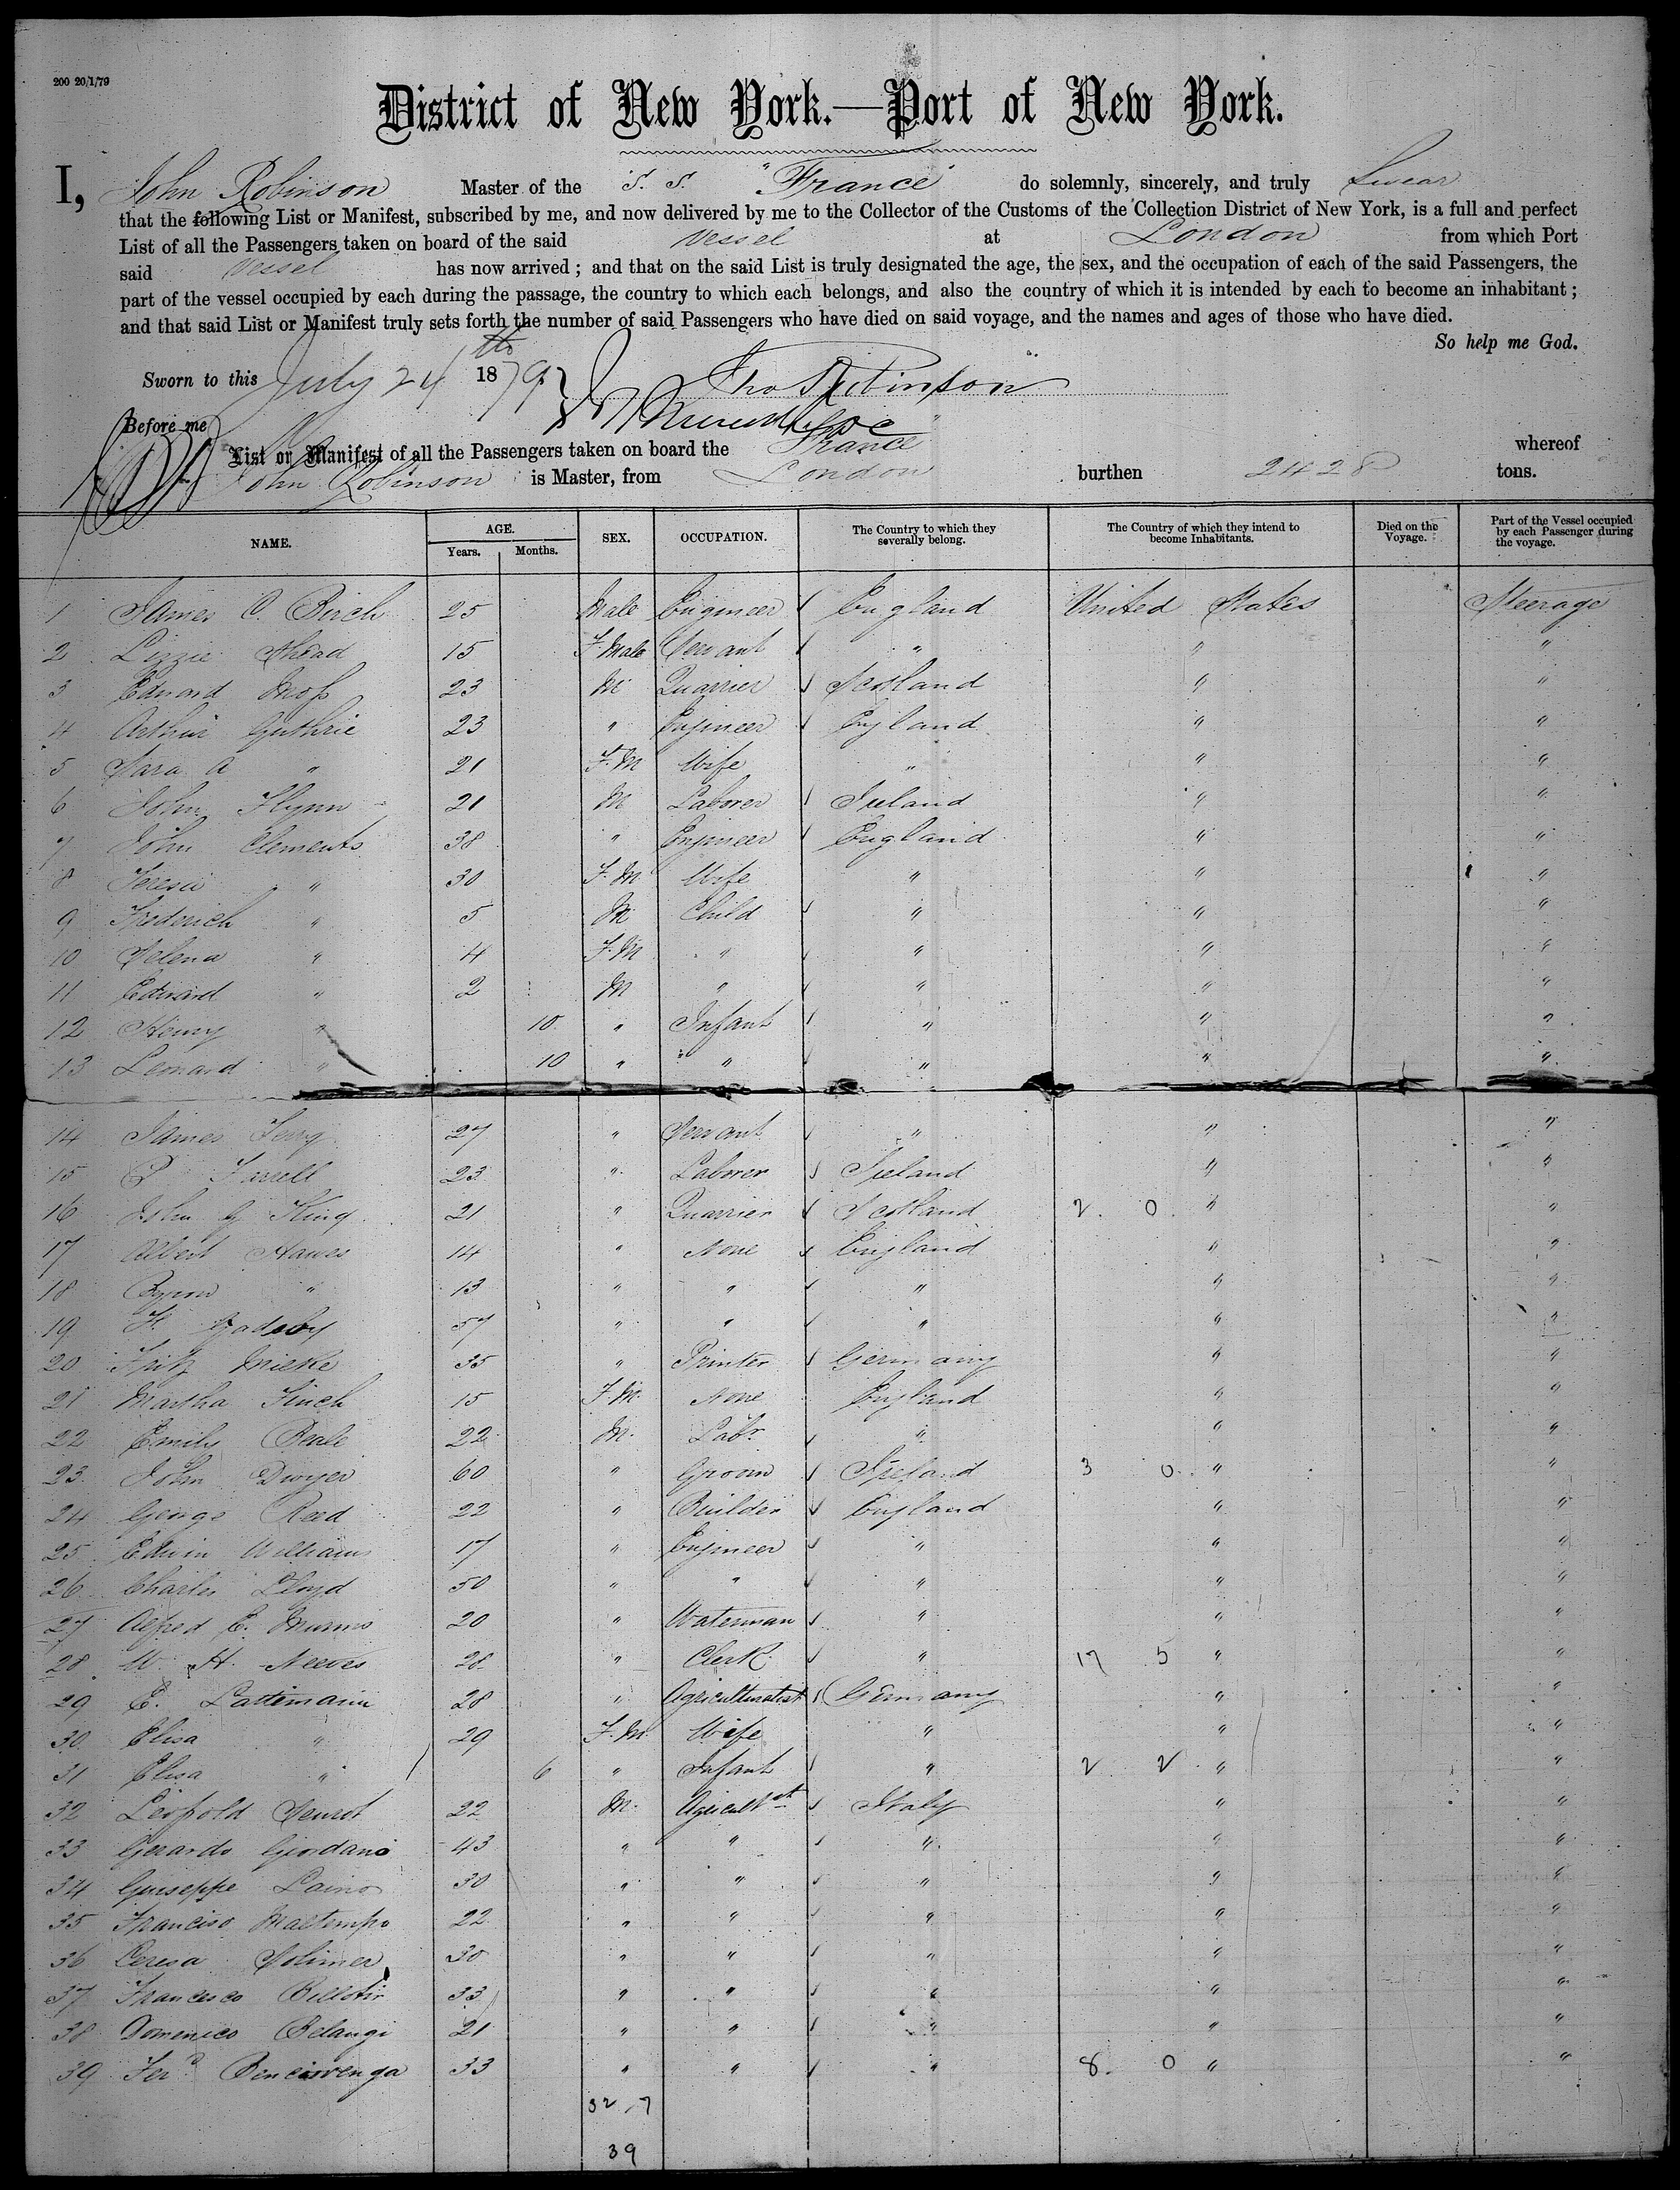 200 20/1/79
District of New York.—Port of New York.
I, John Robinson Master of the S. S. "France" do solemnly, sincerely, and truly Swear
that the following List or Manifest, subscribed by me, and now delivered by me to the Collector of the Customs of the Collection District of New York, is a full and perfect
List of all the Passengers taken on board of the said Vessel at London from which Port
said Vessel has now arrived; and that on the said List is truly designated the age, the sex, and the occupation of each of the said Passengers, the
part of the vessel occupied by each during the passage, the country to which each belongs, and also the country of which it is intended by each to become an inhabitant;
and that said List or Manifest truly sets forth the number of said Passengers who have died on said voyage, and the names and ages of those who have died.
So help me God.
Sworn to this July 24th 1879 Jno Robinson
Before me
List or Manifest of all the Passengers taken on board the France whereof
John Robinson is Master, from London burthen 2428 tons.
NAME. AGE. Years. Months. SEX. OCCUPATION. The Country to which they severally belong. The Country of which they intend to become Inhabitants. Died on the Voyage. Part of the Vessel occupied by each Passenger during the voyage.
1 James C. Birch 25 Male Engineer England United States Steerage
2 Lizzie 15 F. Male Servant " " "
3 Edward Moss 23 M Quarrier Scotland " "
4 Arthur Guthrie 23 " Engineer England " "
5 Sara A " 21 F.M Wife " " "
6 John Flynn 21 M Laborer Ireland " "
7 John Clements 38 " Engineer England " "
8 Teresa " 30 F.M. Wife " " "
9 Frederich " 5 M Child " " "
10 Selena " 4 F.M " " " "
11 Edward " 2 M " " " "
12 Henry " 10 " Infant " " "
13 Lenard " 10 " " " " "
14 James 27 " Servant " " "
15 P Farrell 23 " Laborer Ireland " "
16 John G King 21 " Quarrier Scotland 2. 0. " "
17 Albert Hawes 14 " None England " "
18 Byron " 13 " " " " "
19 H. Gadsby 57 " " " " "
20 Fritz Mieke 35 " Printer Germany " "
21 Martha Finch 15 F.M. None England " "
22 Emily Beale 22 M. Labr " " "
23 John Dwyer 60 " Groom Ireland 3 0. " "
24 George Reed 22 " Builder England " "
25 Edwin Williams 17 " Engineer " " "
26 Charles Lloyd 50 " " " " "
27 Alfred E. 20 " Waterman " " "
28 W. H. Neeves 28 " Clerk " 17 5 " "
29 E. Lattemann 28 " Agriculturalist Germany " "
30 Elisa " 29 F.M. Wife " " "
31 Elisa " 6 " Infant " 2 2 " "
32 Leopold 22 M. Agricultst Italy " "
33 Gerardo Giordano 43 " " " " "
34 Guiseppe Laino 30 " " " " "
35 Francisco Maltempo 22 " " " " "
36 Teresa 30 " " " " "
37 Francesco 33 " " " " "
38 Domenico Belangi 21 " " " " "
39 Ferd Bencivenga 33 " " " 8. 0 " "
32, 7
39